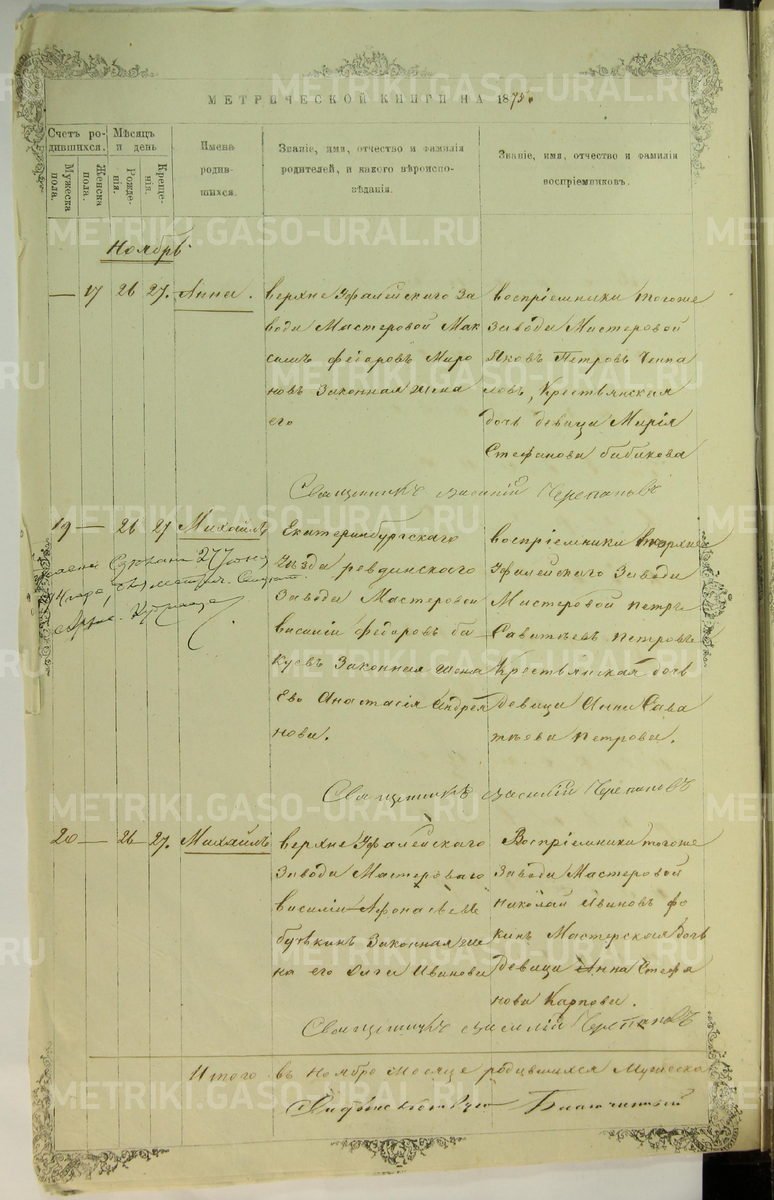 МЕТРИЧЕСКОЙ КНИГИ НА 1875.
Счетъ ро-
дившихся.
Мужеска
пола.
Женска
пола.
Мѣсяцъ
и день
Рожде-
нія.
Креще-
нія.
Имена
родив-
шихся.
Званіе, имя, отчество и фамилія
родителей, и какого вѣроиспо-
вѣданія.
Званіе, имя, отчество и фамилія
воспріемниковъ.
Ноябрь
— 17 26 27. Анна.
верхне Уфалейскаго За
вода Мастеровой Мак
симъ Федоровъ Миро
новъ Законная жена
его
воспріемники тогоже
Завода Мастеровой
Яковъ Петровъ
ловъ, Крествянская
дочь девица Марія
Стефанова бабикова
Священникъ Василій Черепановъ
19 — 26 27 Михайлъ
Екатеринбургскаго
уезда ревдинскаго
Завода Мастеровой
василій федоровъ ба
куевъ Законная жена
Ево Анастасія Андрея
нова.
воспріемники верхне
Уфалейскаго Завода
Мастеровой петръ
Саватѣевъ петровъ
Крествянская дочь
девица Анна Сава
тѣева петрова.
Священникъ Василій Черепановъ
20 — 26 27. Михайлъ
верхне Уфалейскаго
Завода Мастероваго
василій Афонасьевъ
бутѣкинъ Законная же
на его Ольга Иванова
Воспріемники тогоже
Завода Мастеровой
Николай Ивановъ фо
кинъ Мастерская дочь
девица Анна Стефа
нова Карпова.
Священникъ Василій Черепановъ
Итого въ ноябре месяце родившихся Мужеска
METRIKI.GASO-URAL.RU